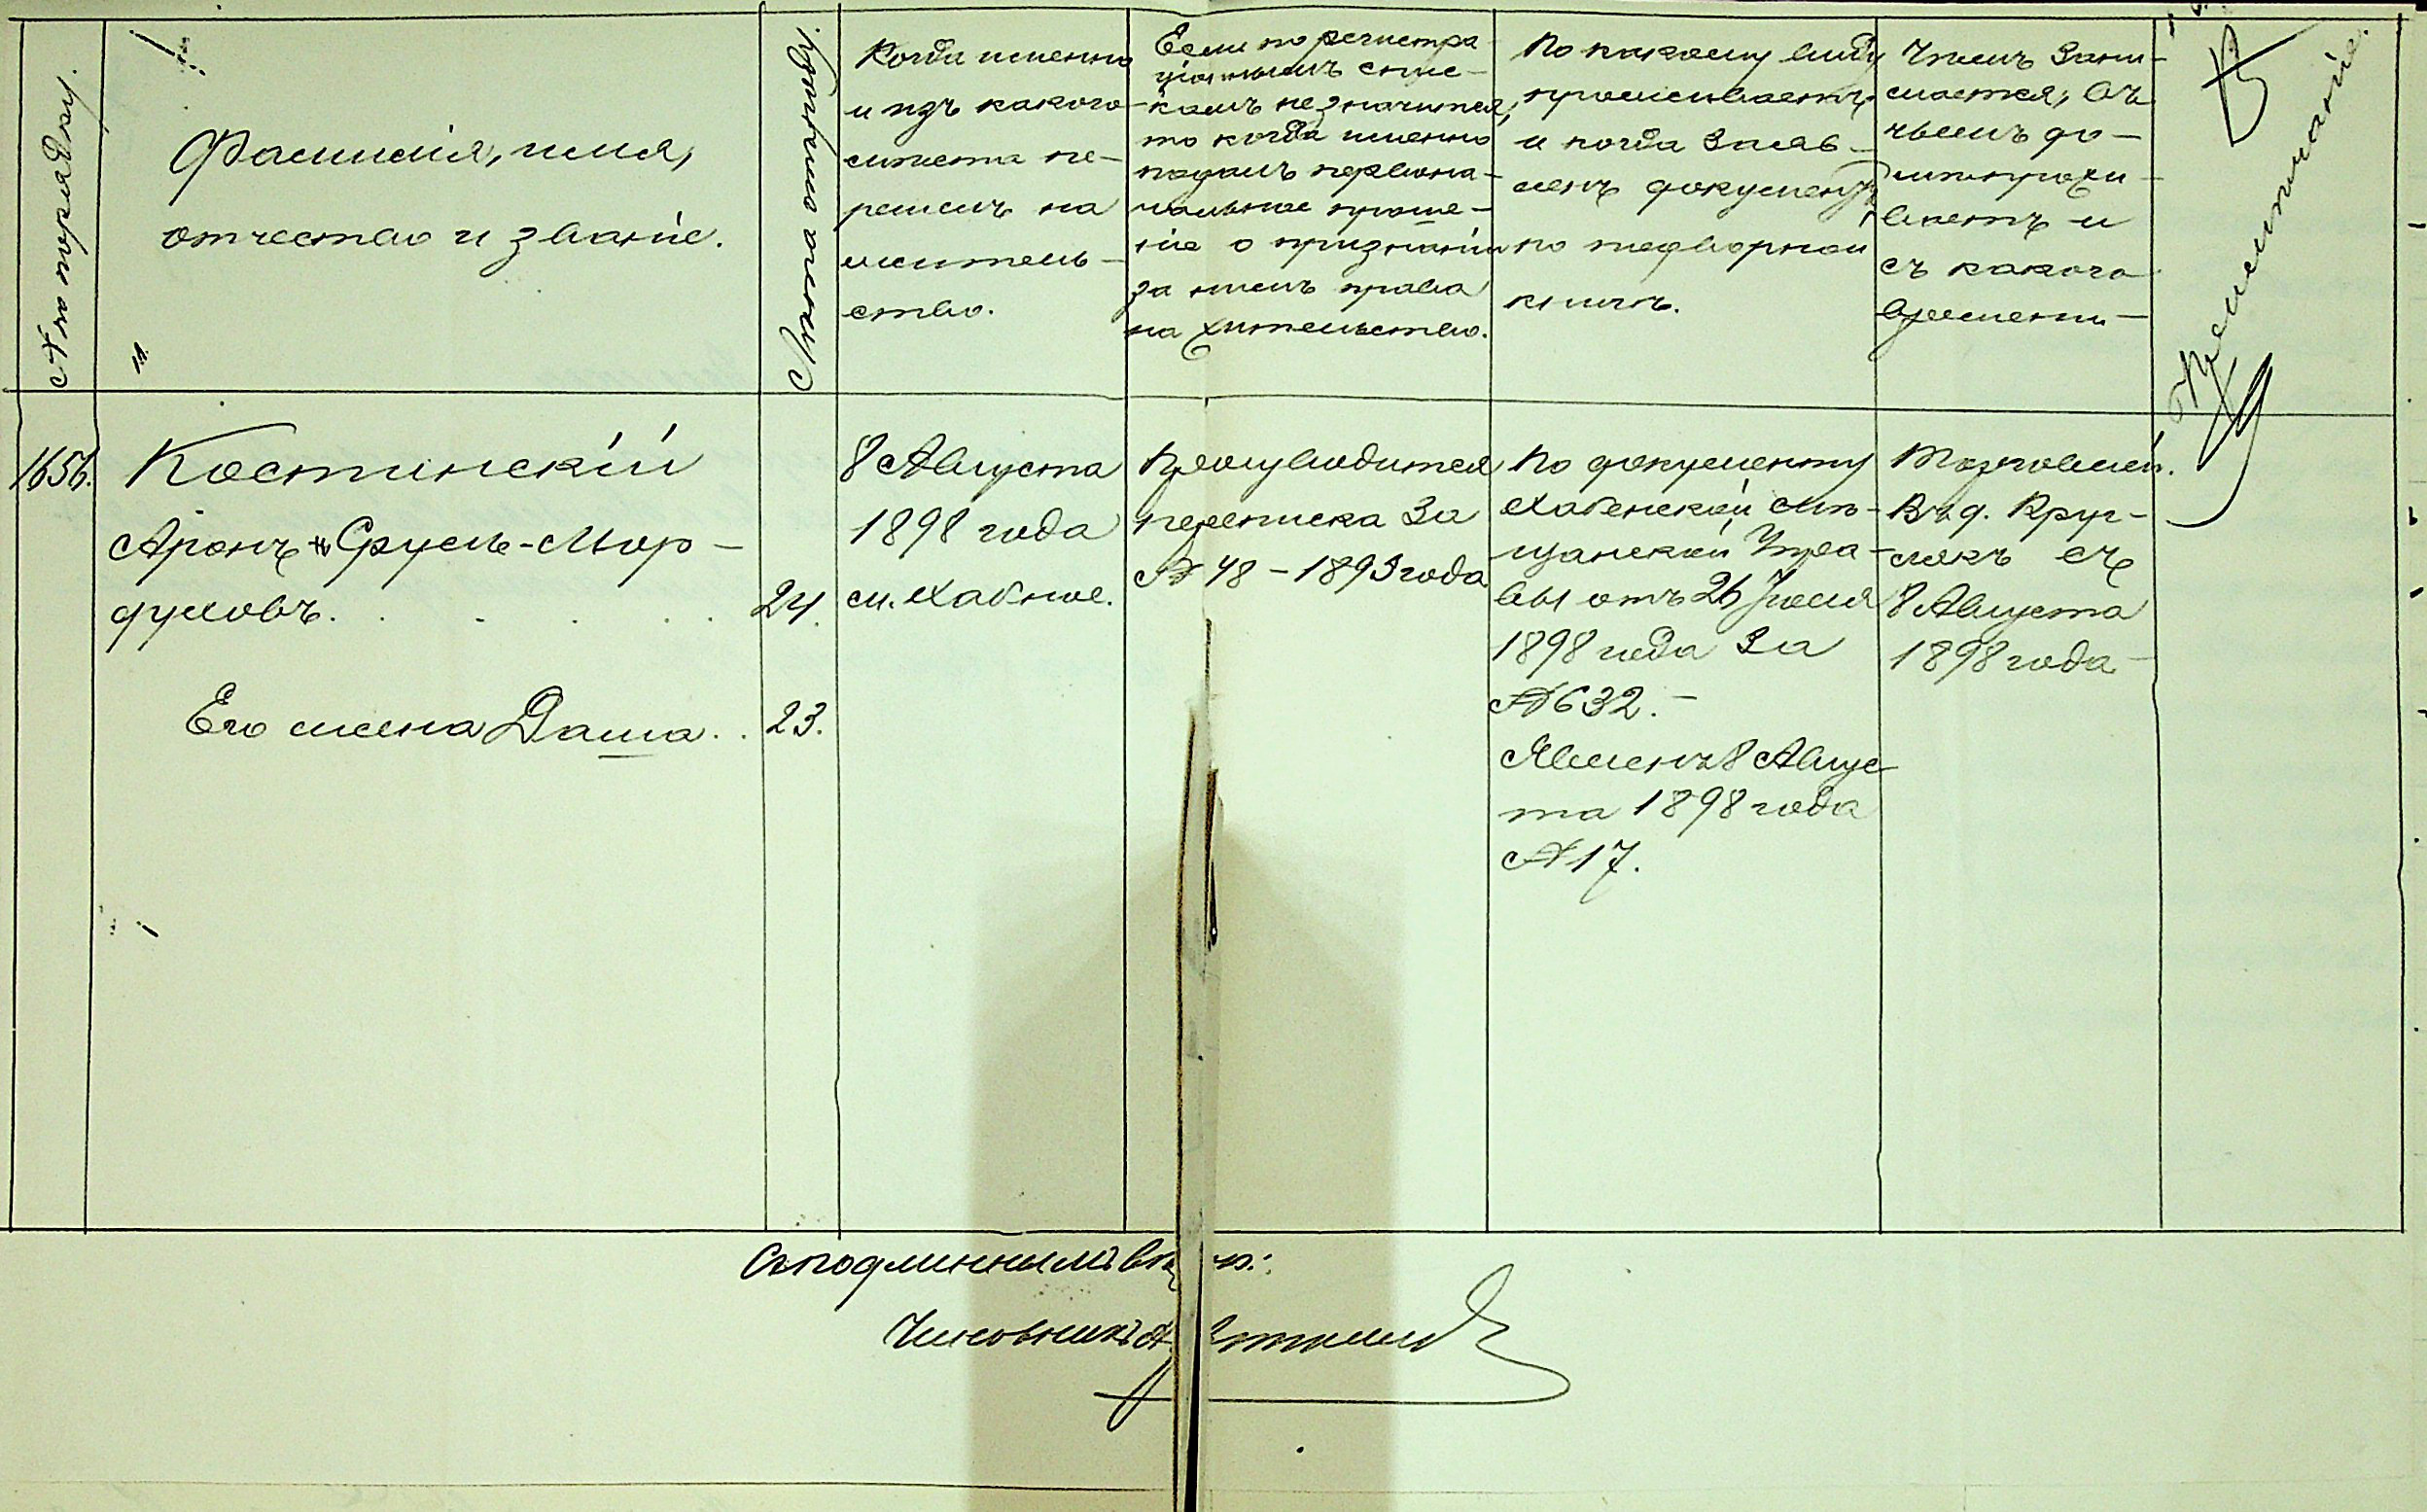 № по порядку.
Фамилія, имя,
отчество и званіе.
Лѣта отъ роду.
Когда именно
и изъ какого
мѣста пе-
решелъ на
житель-
ство.
Если по регистра-
ціоннымъ спис-
камъ не значится,
то когда именно
подалъ первона-
чальное проше-
ніе о признаніи
за нимъ права
на жительство.
По какому виду
проживаетъ
и когда заяв-
ленъ документъ
по подворной
книгѣ.
Чѣмъ зани-
мается, въ
чьемъ до-
мѣ прожи-
ваетъ и
съ какого
времени
Примѣчаніе.
1656.
Костинскій
Аронъ Срулъ-Мор-
духовъ.
24.
Его жена Даша. . 23.
8 Августа
1898 года
м. Хабное.
Производится
переписка за
№ 48 - 1893 года
По документу
Хабенской Мѣ-
щанской Упра-
вы отъ 26 Іюля
1898 года за
№ 632. -
Явленъ 8 Авгус-
та 1898 года
№ 17.
Торговлей.
Въ д. Круг-
лякъ съ
8 Августа
1898 года
Съ подлиннымъ
Чиновникъ